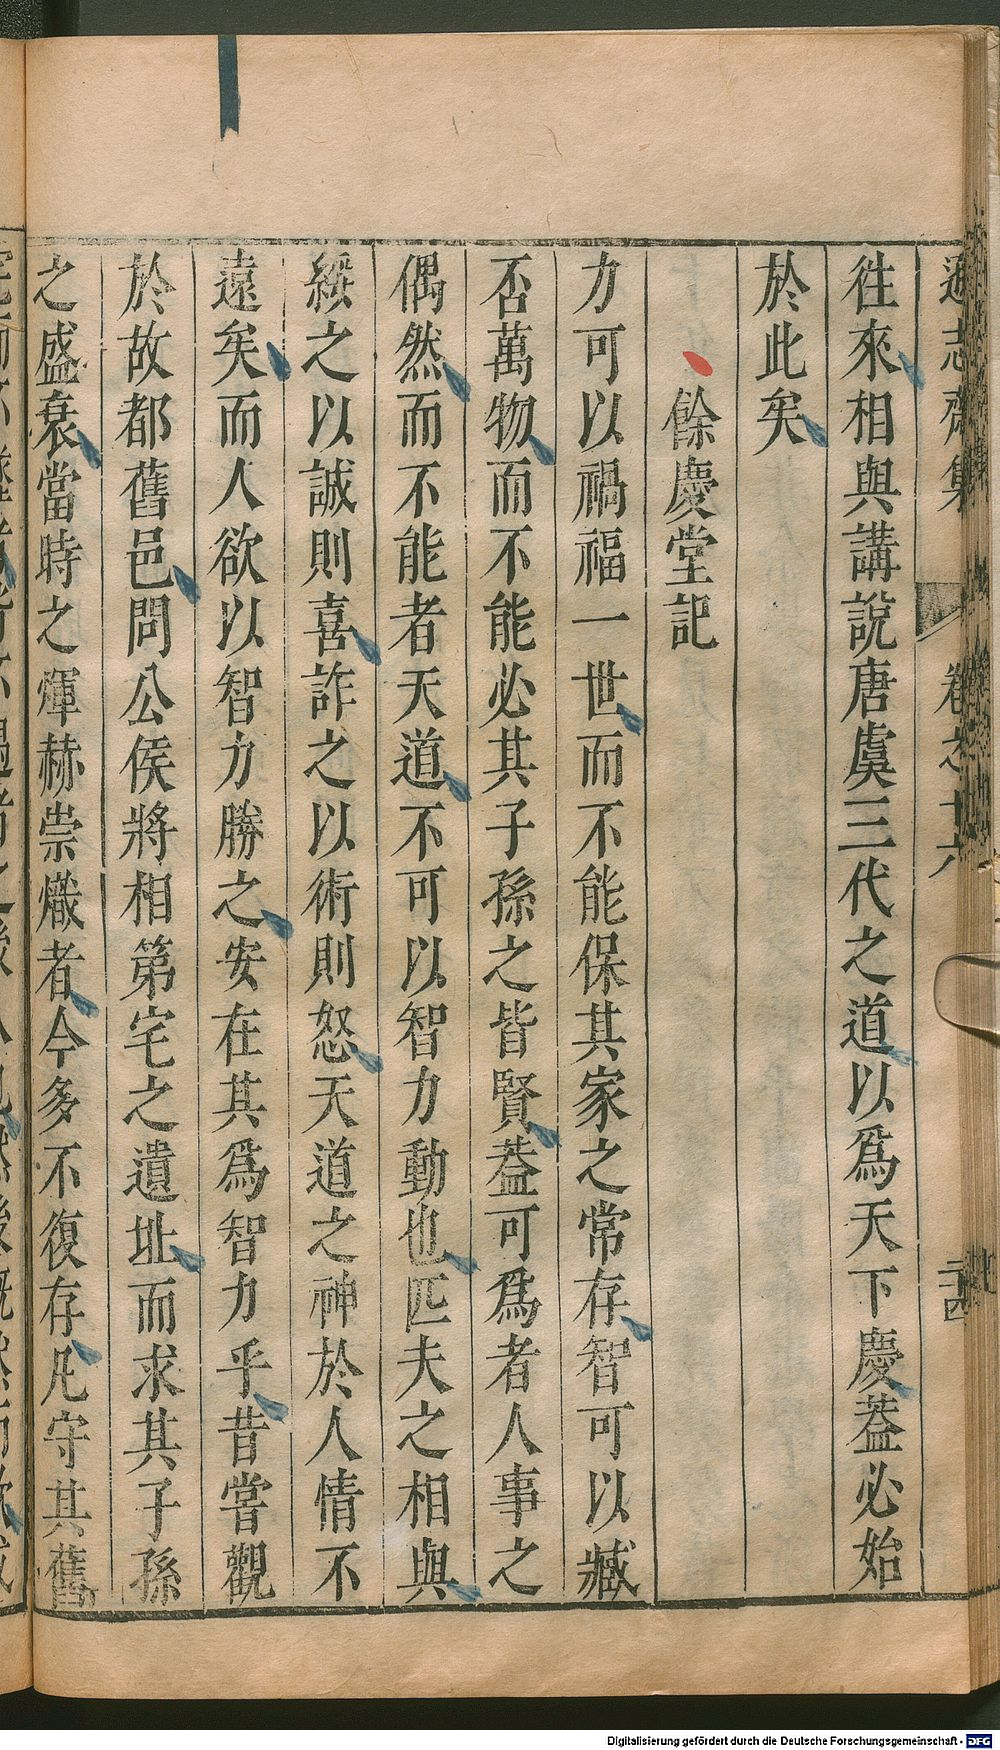 遜志齋集 卷之十六
往來相與講說唐虞三代之道以爲天下慶葢必始
於此矣
餘慶堂記
力可以禍福一世而不能保其家之常存智可以臧
否萬物而不能必其子孫之皆賢葢可爲者人事之
偶然而不能者天道不可以智力動也匹夫之相與
綏之以誠則喜詐之以術則怒天道之神於人情不
遠矣而人欲以智力勝之安在其爲智力乎昔嘗觀
於故都舊邑問公侯將相第宅之遺址而求其子孫
之盛衰當時之煇赫崇熾者今多不復存凡守其舊
Digitalisierung gefördert durch die Deutsche Forschungsgemeinschaft - DFG